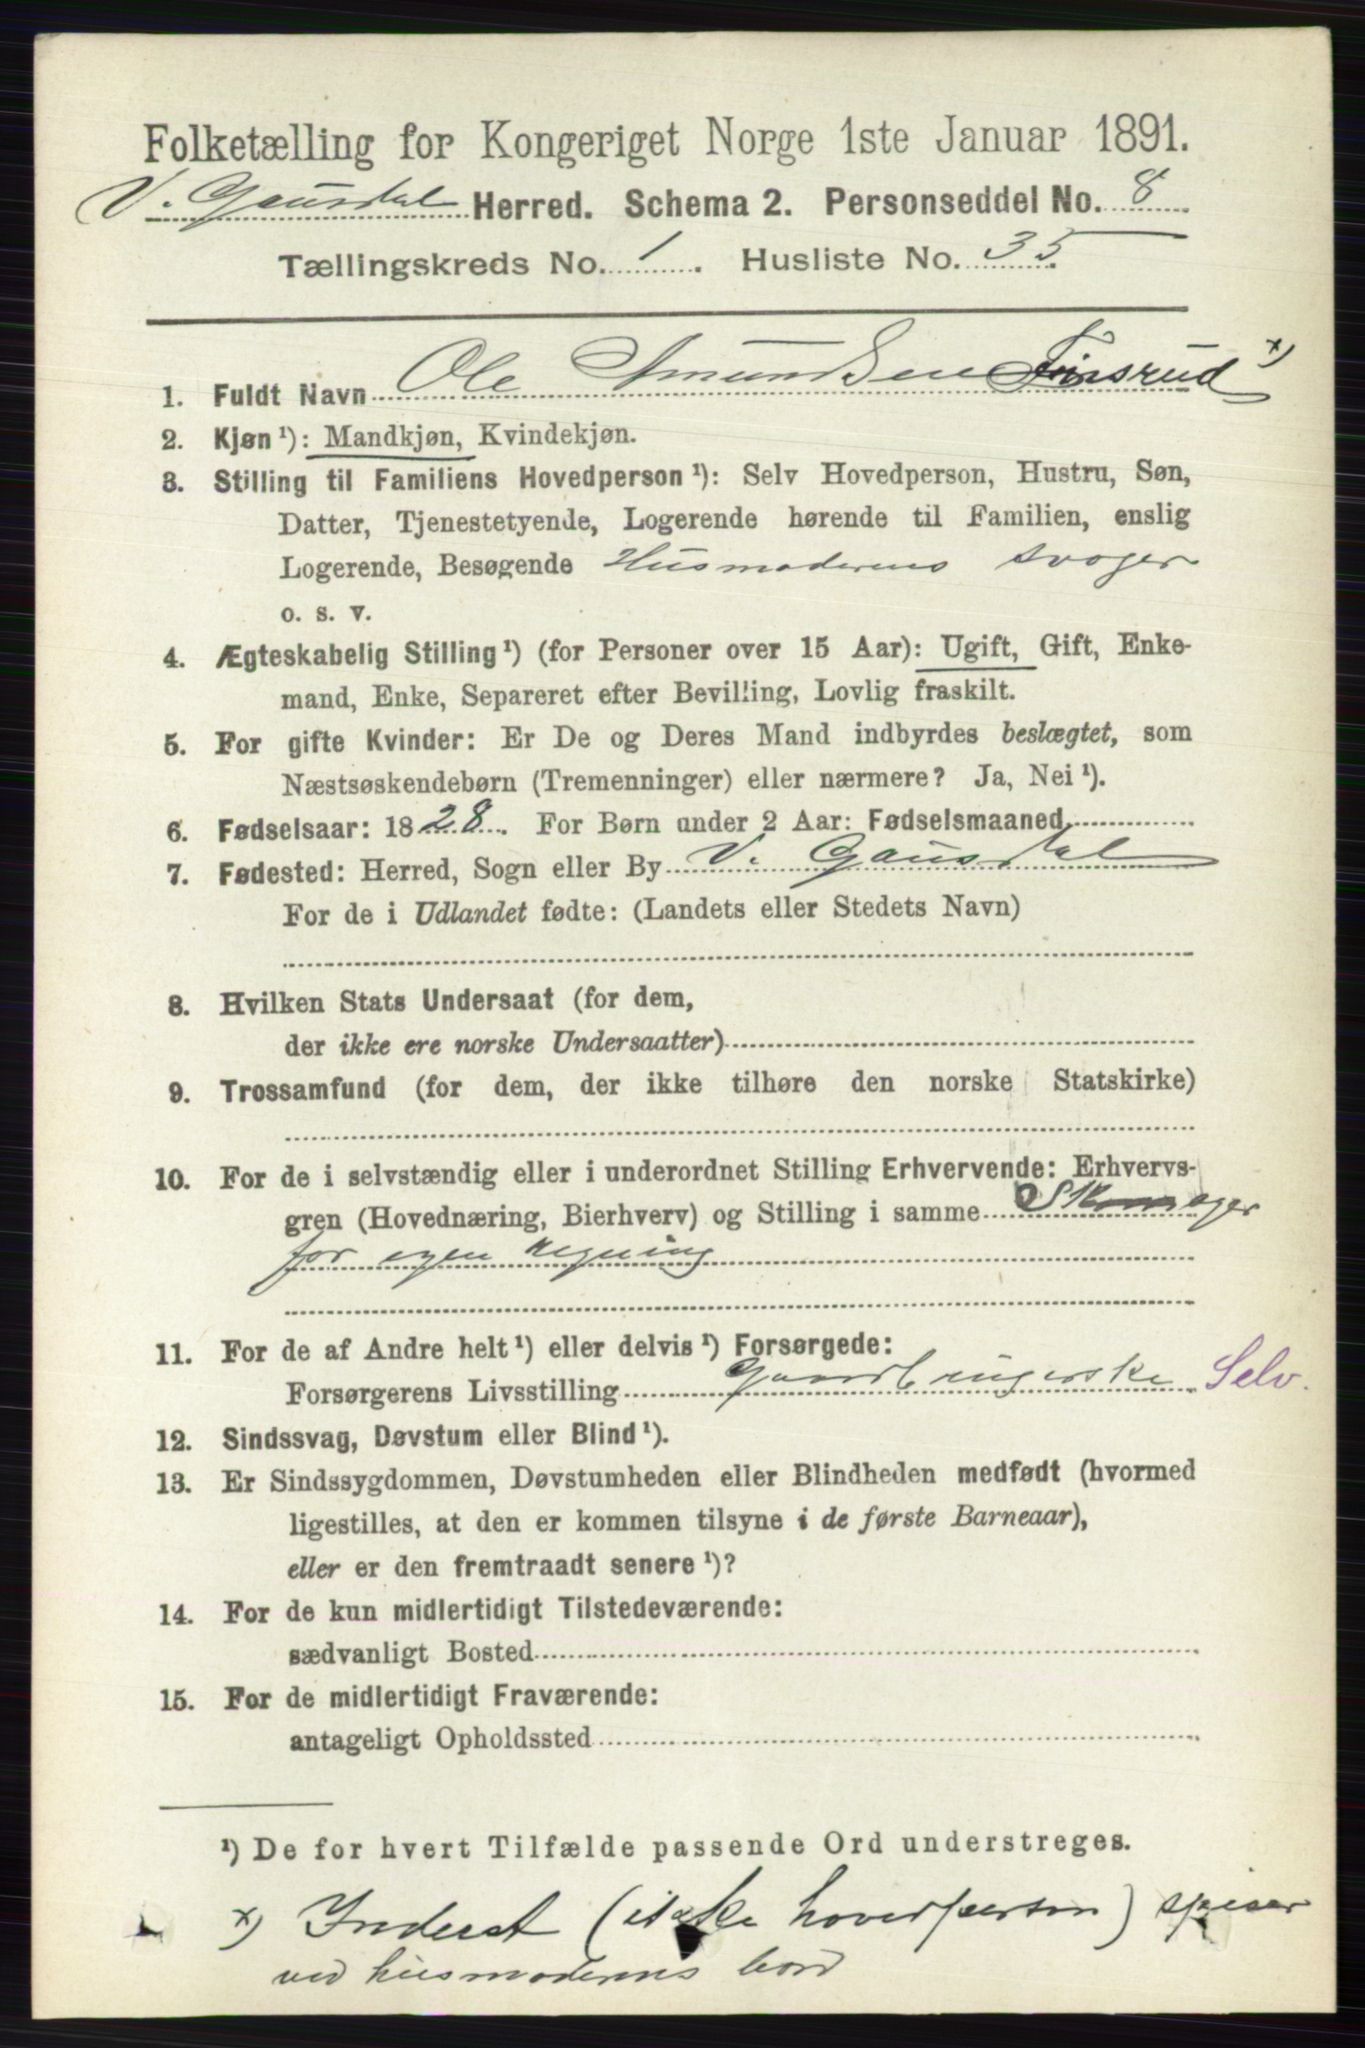 Folketælling for Kongeriget Norge 1ste Januar 1891.
V. Gausdal Herred. Schema 2. Personseddel No. 8
Tællingskreds No. 1. Husliste No. 35
1. Fuldt Navn Ole Amundsen Finsrud x)
2. Kjøn ¹): Mandkjøn, Kvindekjøn.
3. Stilling til Familiens Hovedperson ¹): Selv Hovedperson, Hustru, Søn,
Datter, Tjenestetyende, Logerende hørende til Familien, enslig
Logerende, Besøgende Husmoderens svoger
o. s. v.
4. Ægteskabelig Stilling ¹) (for Personer over 15 Aar): Ugift, Gift, Enke-
mand, Enke, Separeret efter Bevilling, Lovlig fraskilt.
5. For gifte Kvinder: Er De og Deres Mand indbyrdes beslægtet, som
Næstsøskendebørn (Tremenninger) eller nærmere? Ja, Nei ¹).
6. Fødselsaar: 1828. For Børn under 2 Aar: Fødselsmaaned
7. Fødested: Herred, Sogn eller By V. Gausdal
For de i Udlandet fødte: (Landets eller Stedets Navn)
8. Hvilken Stats Undersaat (for dem,
der ikke ere norske Undersaatter)
9. Trossamfund (for dem, der ikke tilhøre den norske Statskirke)
10. For de i selvstændig eller i underordnet Stilling Erhvervende: Erhvervs-
gren (Hovednæring, Bierhverv) og Stilling i samme Skomager
for egen Regning
11. For de af Andre helt ¹) eller delvis ¹) Forsørgede:
Forsørgerens Livsstilling Gaardbrugerske Selv.
12. Sindssvag, Døvstum eller Blind ¹).
13. Er Sindssygdommen, Døvstumheden eller Blindheden medfødt (hvormed
ligestilles, at den er kommen tilsyne i de første Barneaar),
eller er den fremtraadt senere ¹)?
14. For de kun midlertidigt Tilstedeværende:
sædvanligt Bosted
15. For de midlertidigt Fraværende:
antageligt Opholdssted
¹) De for hvert Tilfælde passende Ord understreges.
x) Inderst (ikke hovedperson) spiser
ved husmoderens bord